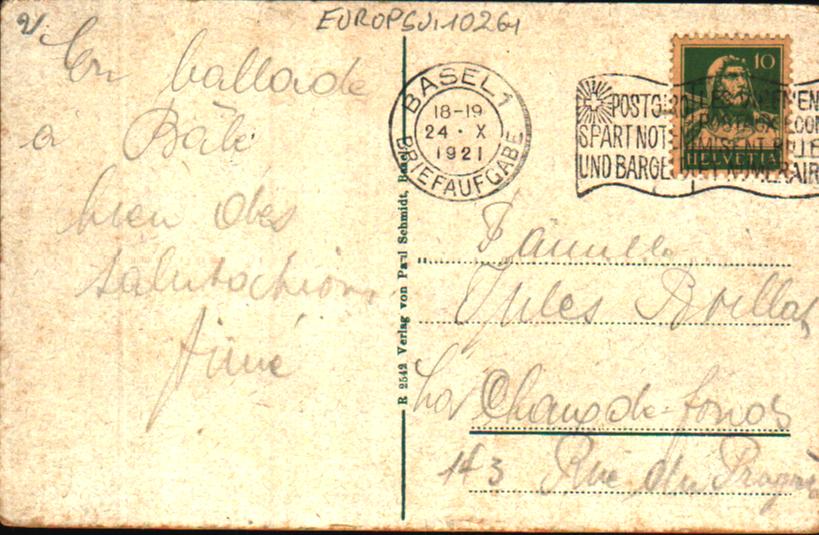 EUROPSUI10261
En ballade
à Bâle
bien des
salutations
Aimé
BASEL 1
18-19
24 · X
1921
BRIEFAUFGABE
POSTG
SPART NOT
UND BARGE
10
HELVETIA
R 2542 Verlag von Paul Schmidt, Basel
Famille
Jules Boillat
La Chaux-de-fonds
143 Rue du Progrès